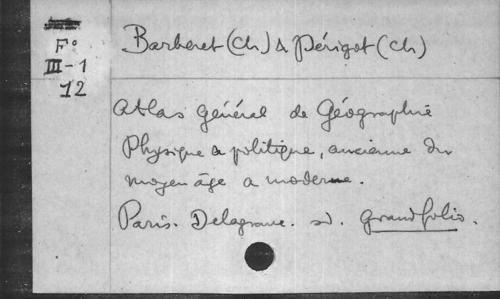 F°
III-1
12
Barberet (Ch) & Périgot (Ch)
Atlas général de Géographie
Physique & politique, ancienne du
moyen âge & moderne.
Paris. Delagrave. sd. Grand folio.